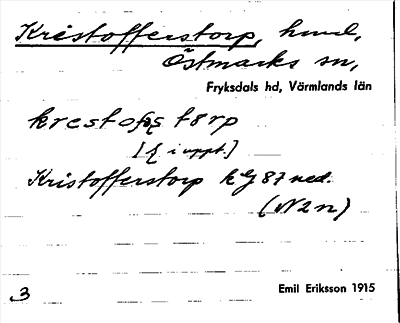 Kristofferstorp, hmd,
Östmarks sn,
Fryksdals hd, Värmlands län
krestofəʂ tɵrp
[ʂ i uppt.]
Kristofferstorp kG 87 ned.
(N2n)
3
Emil Eriksson 1915